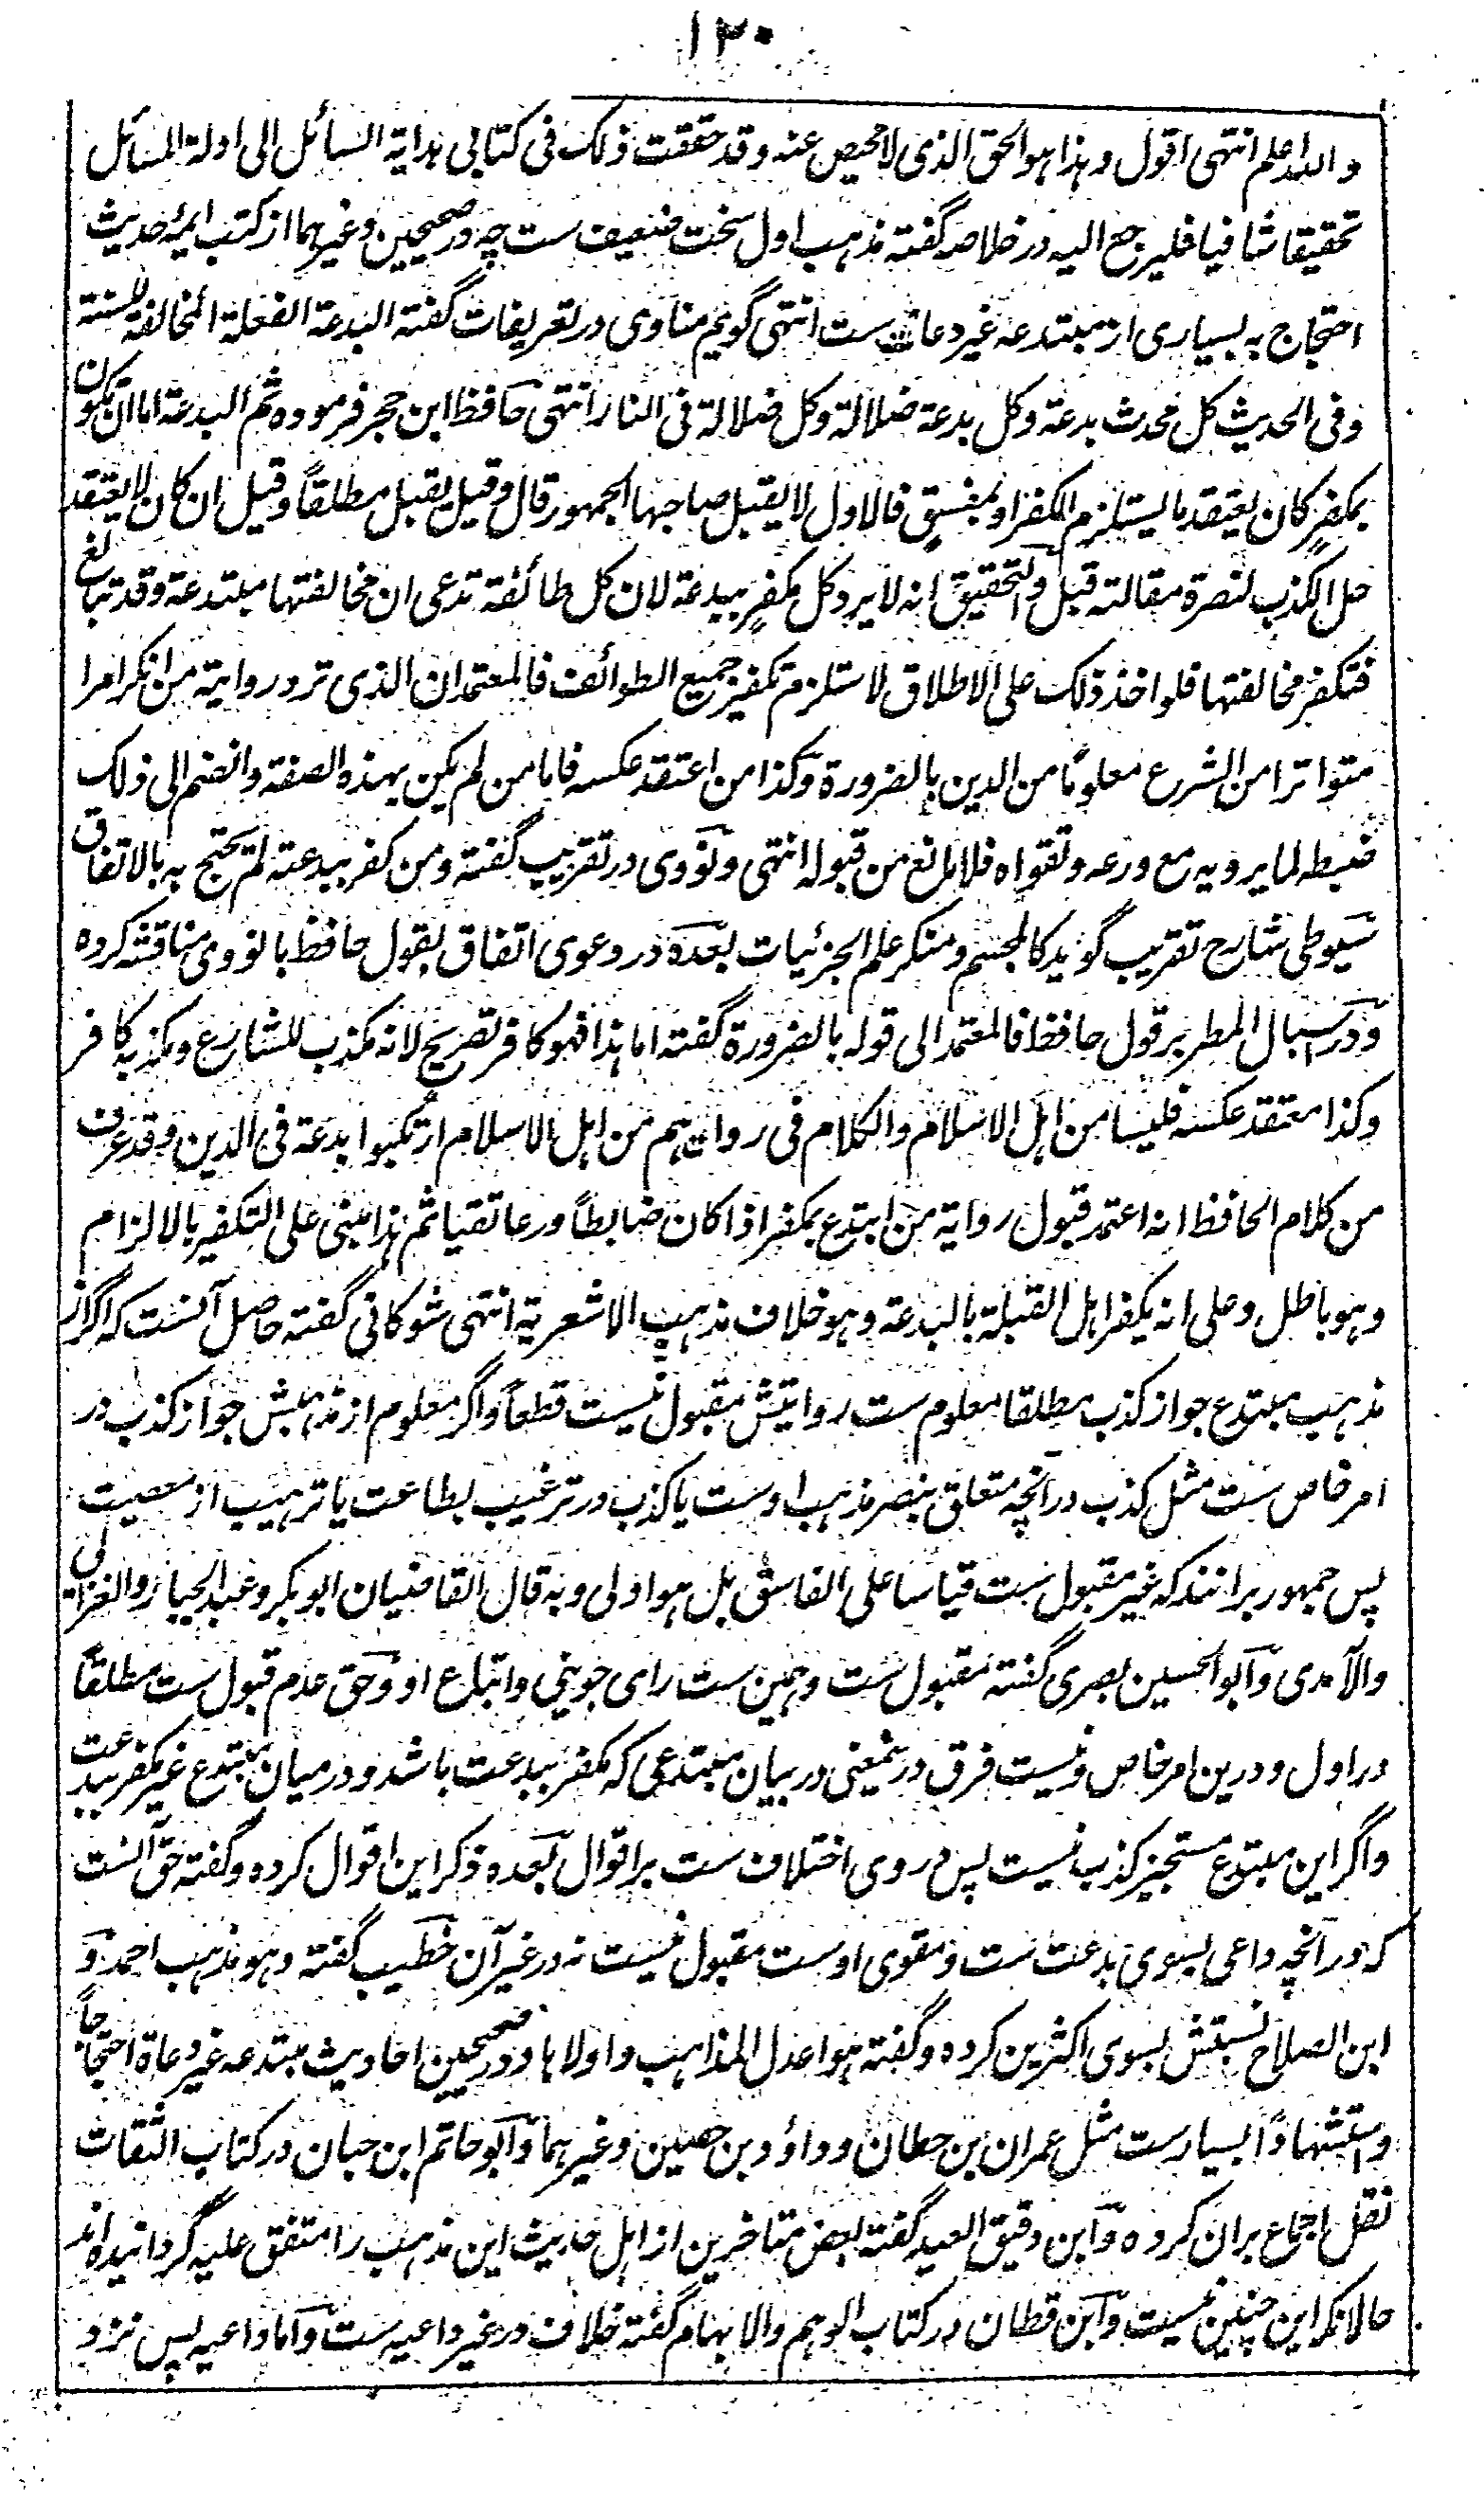 ۱۳۰
والله اعلم انتهی اقول و هذا هو الحق الذی لا محیص عنه وقد حققت ذلک فی کتابی هدایة السائل الی ادلة المسائل
تحقیقا شافیا فلیرجع الیه در خلاصه گفته مذهب اول سخت ضعیف ست چه در صحیحین وغیرهما از کتب ایمه حدیث
احتجاج به بسیاری از مبتدعه غیر دعات ست انتهی گویم مناوی در تعریفات گفته البدعة الفعلة المخالفة للسنة
وفی الحدیث کل محدث بدعة وکل بدعة ضلالة وکل ضلالة فی النار انتهی حافظ ابن حجر فرموده ثم البدعة اما ان تکون
بمکفر کان یعتقد ما یستلزم الکفر او بمفسق فالاول لا یقبل صاحبها الجمهور قال وقیل یقبل مطلقاً وقیل ان کان لا یعتقد
حل الکذب لنصرة مقالته قبل والتحقیق انه لا یرد کل مکفر ببدعة لان کل طائفة تدعی ان مخالفتها مبتدعة وقد تبالغ
فتکفر مخالفتها فلو اخذ ذلک علی الاطلاق لاستلزم تکفیر جمیع الطوائف فالمعتمد ان الذی ترد روایته من انکر امرا
متواترا من الشرع معلوماً من الدین بالضرورة وکذا من اعتقد عکسه فاما من لم یکن بهذه الصفة وانضم الی ذلک
ضبطه لما یرویه مع ورعه وتقواه فلا مانع من قبوله انتهی ونووی در تقریب گفته ومن کفر ببدعته لم یحتج به بالاتفاق
سیوطی شارح تقریب گوید کالمجسم ومنکر علم الجزئیات بعده در دعوی اتفاق بقول حافظ با نووی مناقشه کرده
ودر اسبال المطر بر قول حافظ فالمعتمد الی قوله بالضرورة گفته اما هذا فهو کافر تصریح لانه مکذب للشارع ومکذبه کافر
وکذا معتقد عکسه فلیسا من اهل الاسلام والکلام فی رواة هم من اهل الاسلام ارتکبوا بدعة فی الدین وقد عرف
من کلام الحافظ انه اعتمد قبول روایة من ابتدع بمکفر اذا کان ضابطاً ورعا تقیا ثم هذا مبنی علی التکفیر بالالزام
وهو باطل وعلی انه یکفر اهل القبلة بالبدعة وهو خلاف مذهب الاشعریة انتهی شوکانی گفته حاصل آنست که اگر از
مذهب مبتدع جواز کذب مطلقا معلوم ست روایتش مقبول نیست قطعاً واگر معلوم از مذهبش جواز کذب در
امر خاص ست مثل کذب در آنچه متعلق بنصر مذهب اوست یا کذب در ترغیب بطاعت یا ترهیب از معصیت
پس جمهور برانند که غیر مقبول ست قیاسا علی الفاسق بل هو اولی وبه قال القاضیان ابو بکر وعبد الجبار والغزالی
والآمدی وابو الحسین بصری گفته مقبول ست وهمین ست رای جوینی واتباع او وحق عدم قبول ست مطلقاً
در اول ودرین امر خاص ونیست فرق درینمعنی در بیان مبتدعی که مکفر ببدعت باشد ودرمیان مبتدع غیر مکفر ببدعت
واگر این مبتدع مستجیز کذب نیست پس در وی اختلاف ست بر اقوال بعده ذکر این اقوال کرده وگفته حق آنست
که در آنچه داعی بسوی بدعت ست ومقوی اوست مقبول نیست نه در غیر آن خطیب گفته وهو مذهب احمد و
ابن الصلاح نسبتش بسوی اکثرین کرده وگفته هو اعدل المذاهب واولاها ودر صحیحین احادیث مبتدعه غیر دعاة احتجاجاً
واستشهاداً بسیارست مثل عمران بن حطان وداؤد بن حصین وغیرهما وابو حاتم ابن حبان در کتاب الثقات
نقل اجماع بران کرده وابن دقیق العید گفته بعض متاخرین از اهل حدیث این مذهب را متفق علیه گردانیده اند
حالانکه این چنین نیست وابن قطان در کتاب الوهم والایهام گفته خلاف در غیر داعیه ست واما داعیه پس نزد